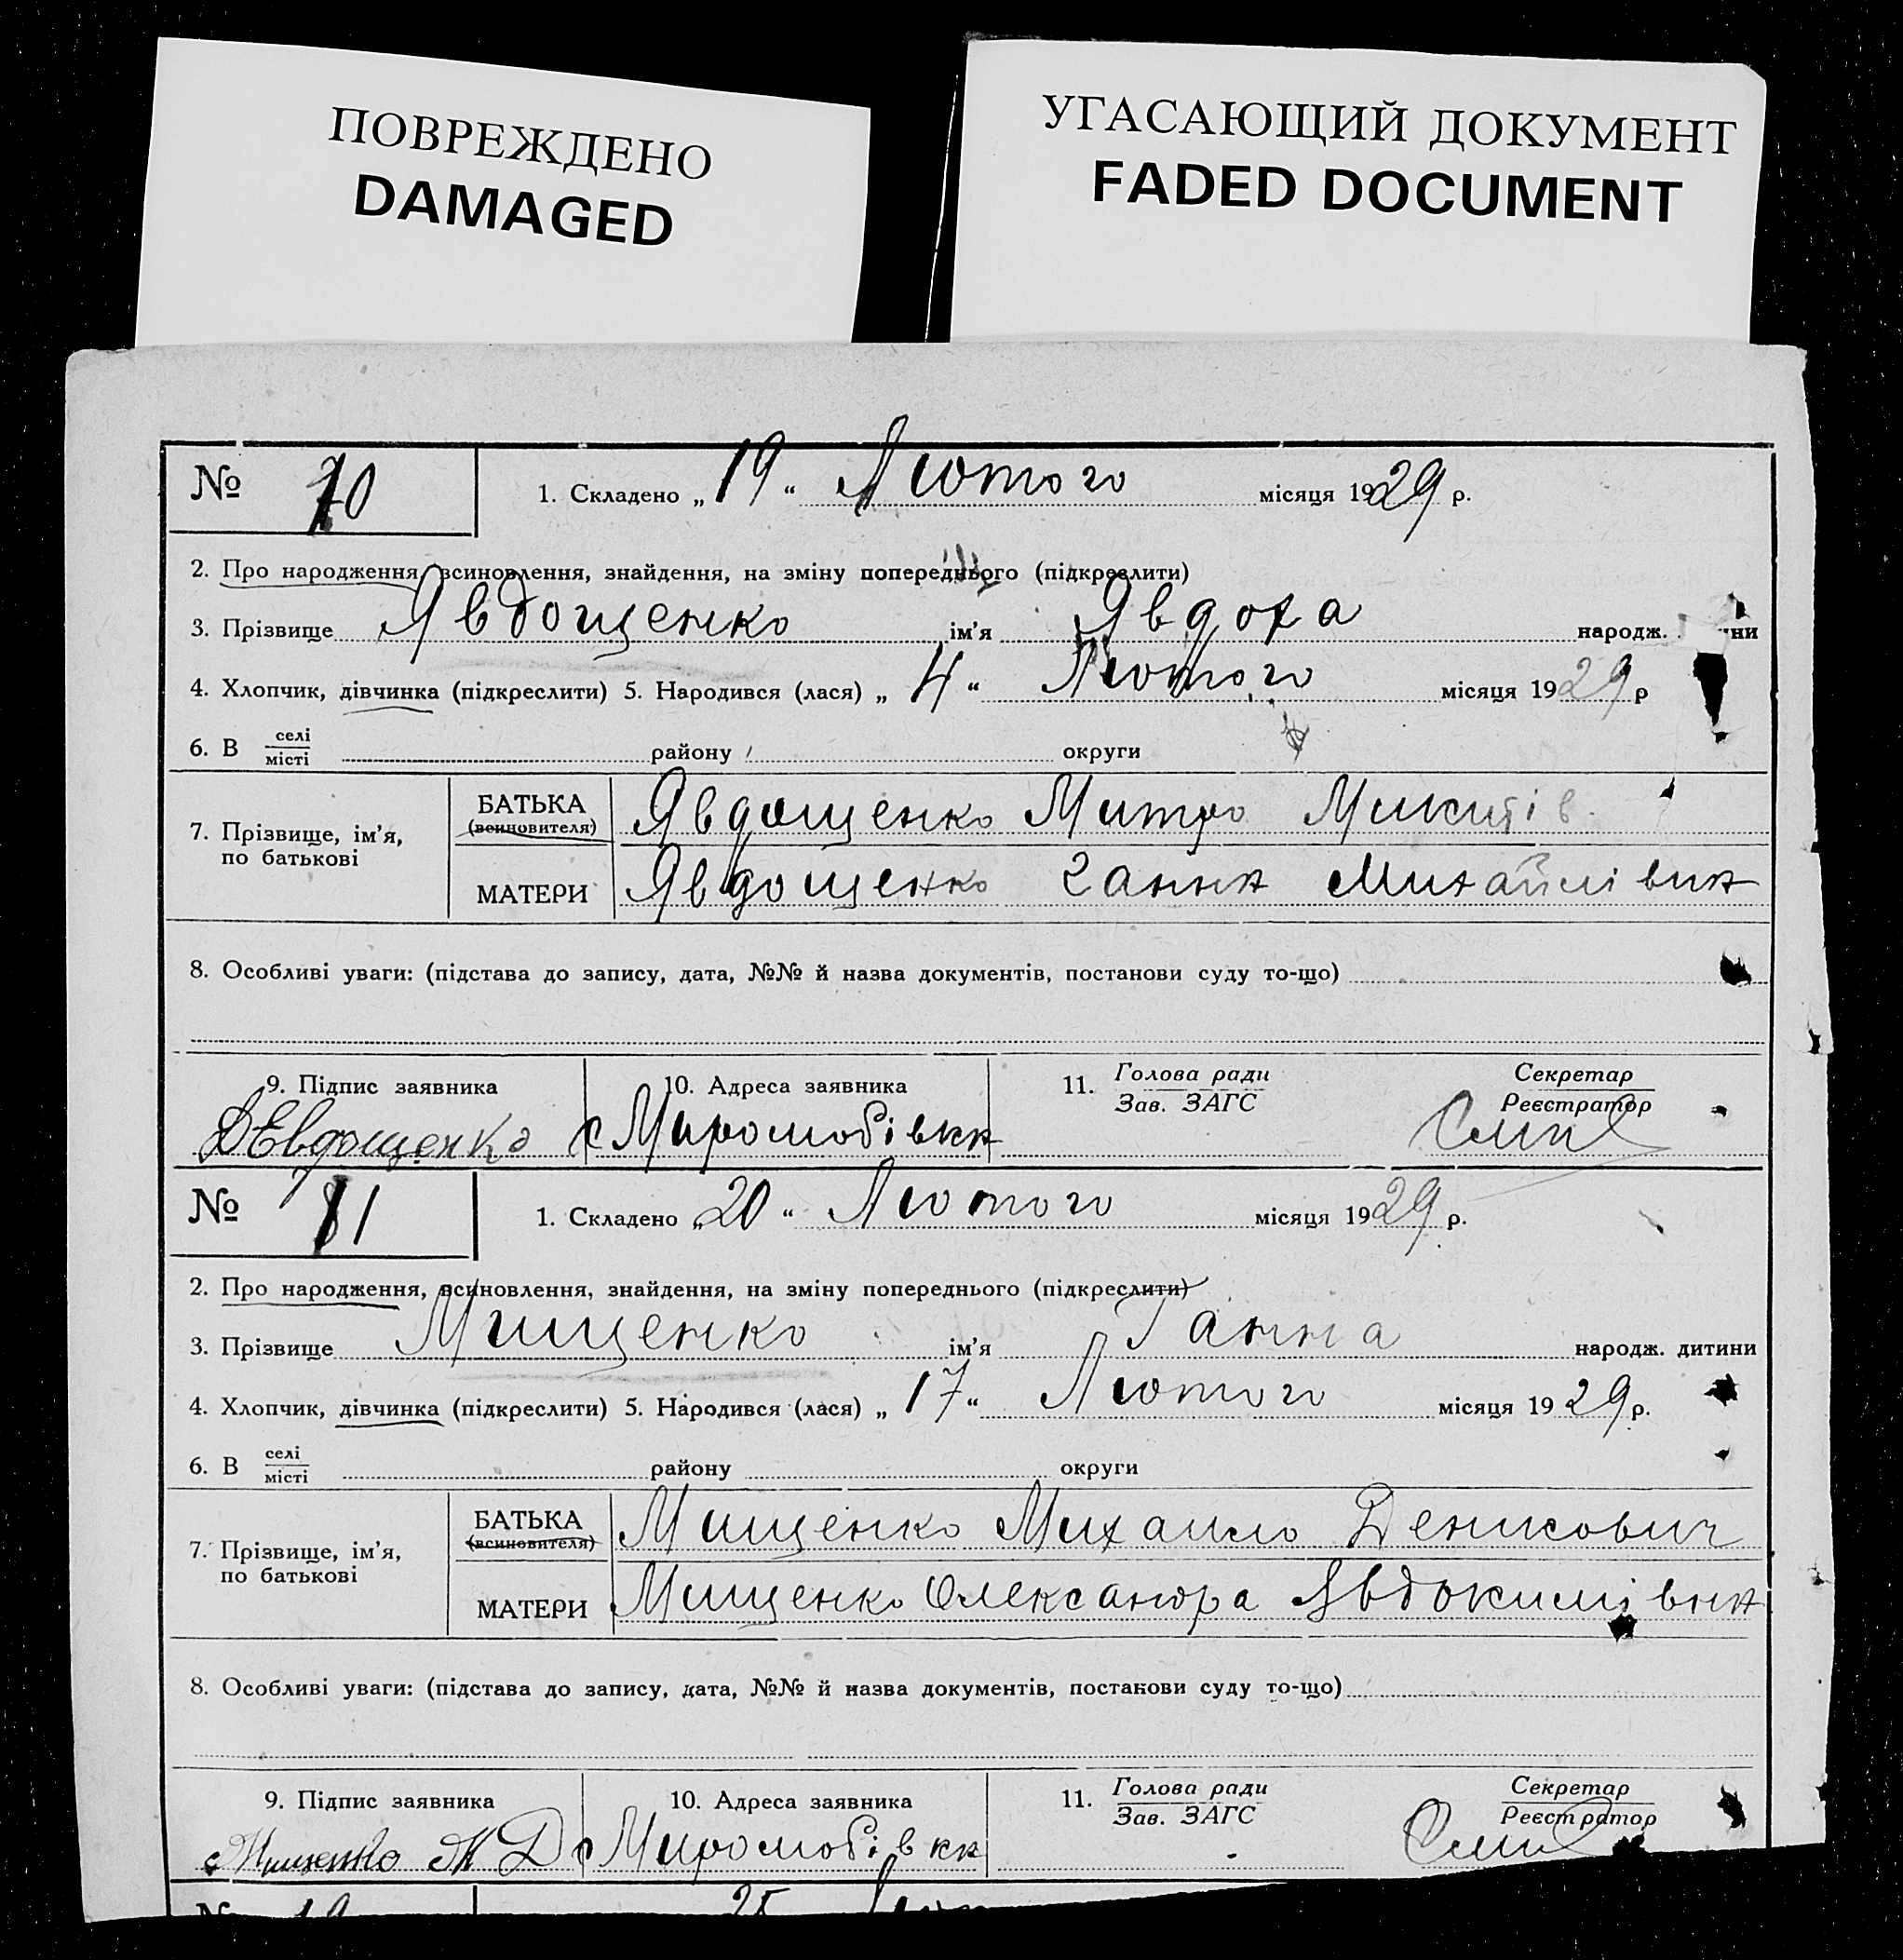 ПОВРЕЖДЕНО
DAMAGED
УГАСАЮЩИЙ ДОКУМЕНТ
FADED DOCUMENT
№ 10
1. Складено „ 19 “ Лютого місяця 1929 р.
2. Про народження, всиновлення, знайдення, на зміну попереднього (підкреслити)
3. Прізвище Явдощенко ім’я Явдоха народж.
4. Хлопчик, дівчинка (підкреслити) 5. Народився (лася) „ 4 “ Лютого місяця 1929 р
6. В селі
місті району округи
7. Прізвище, ім’я,
по батькові
БАТЬКА
(всиновителя)
Явдощенко Митро Микитів
МАТЕРИ Явдощенко Ганна Михайлівна
8. Особливі уваги: (підстава до запису, дата, №№ й назва документів, постанови суду то-що)
9. Підпис заявника
ДЕвдощенко
10. Адреса заявника
с Миромобівка
11. Голова ради
Зав. ЗАГС
Секретар
Реєстратор
№ 11
1. Складено „ 20 “ Лютого місяця 1929 р.
2. Про народження, всиновлення, знайдення, на зміну попереднього (підкреслити)
3. Прізвище Мищенко ім’я Ганна народж. дитини
4. Хлопчик, дівчинка (підкреслити) 5. Народився (лася) „ 17 “ Лютого місяця 1929 р.
6. В селі
місті району округи
7. Прізвище, ім’я,
по батькові
БАТЬКА
(всиновителя)
Мищенко Михайло Денисович
МАТЕРИ Мищенко Олександра Явдокимівна
8. Особливі уваги: (підстава до запису, дата, №№ й назва документів, постанови суду то-що)
9. Підпис заявника
Мищенко М Д
10. Адреса заявника
с Миромобівка
11. Голова ради
Зав. ЗАГС
Секретар
Реєстратор